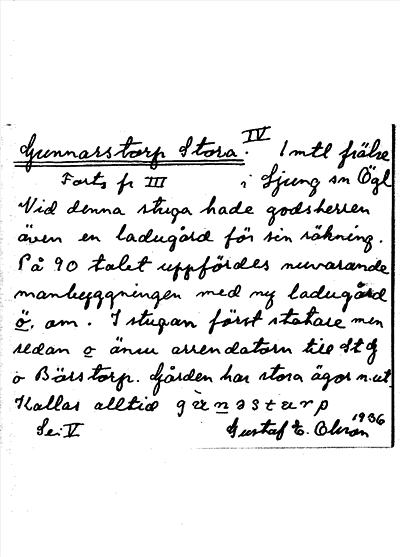 Gunnarstorp Stora. IV 1 mtl frälse
Forts fr III i Ljung sn Ögl
Vid denna stuga hade godsherren
även en ladugård för sin räkning.
På 90 talet uppfördes nuvarande
manbyggningen med ny ladugård
ö. om. I stugan först statare men
sedan o ännu arrendatorn till St G
o Börstorp. Gården har stora ägor n.ut.
Kallas alltid
Se: V Gustaf E. Olson 1936